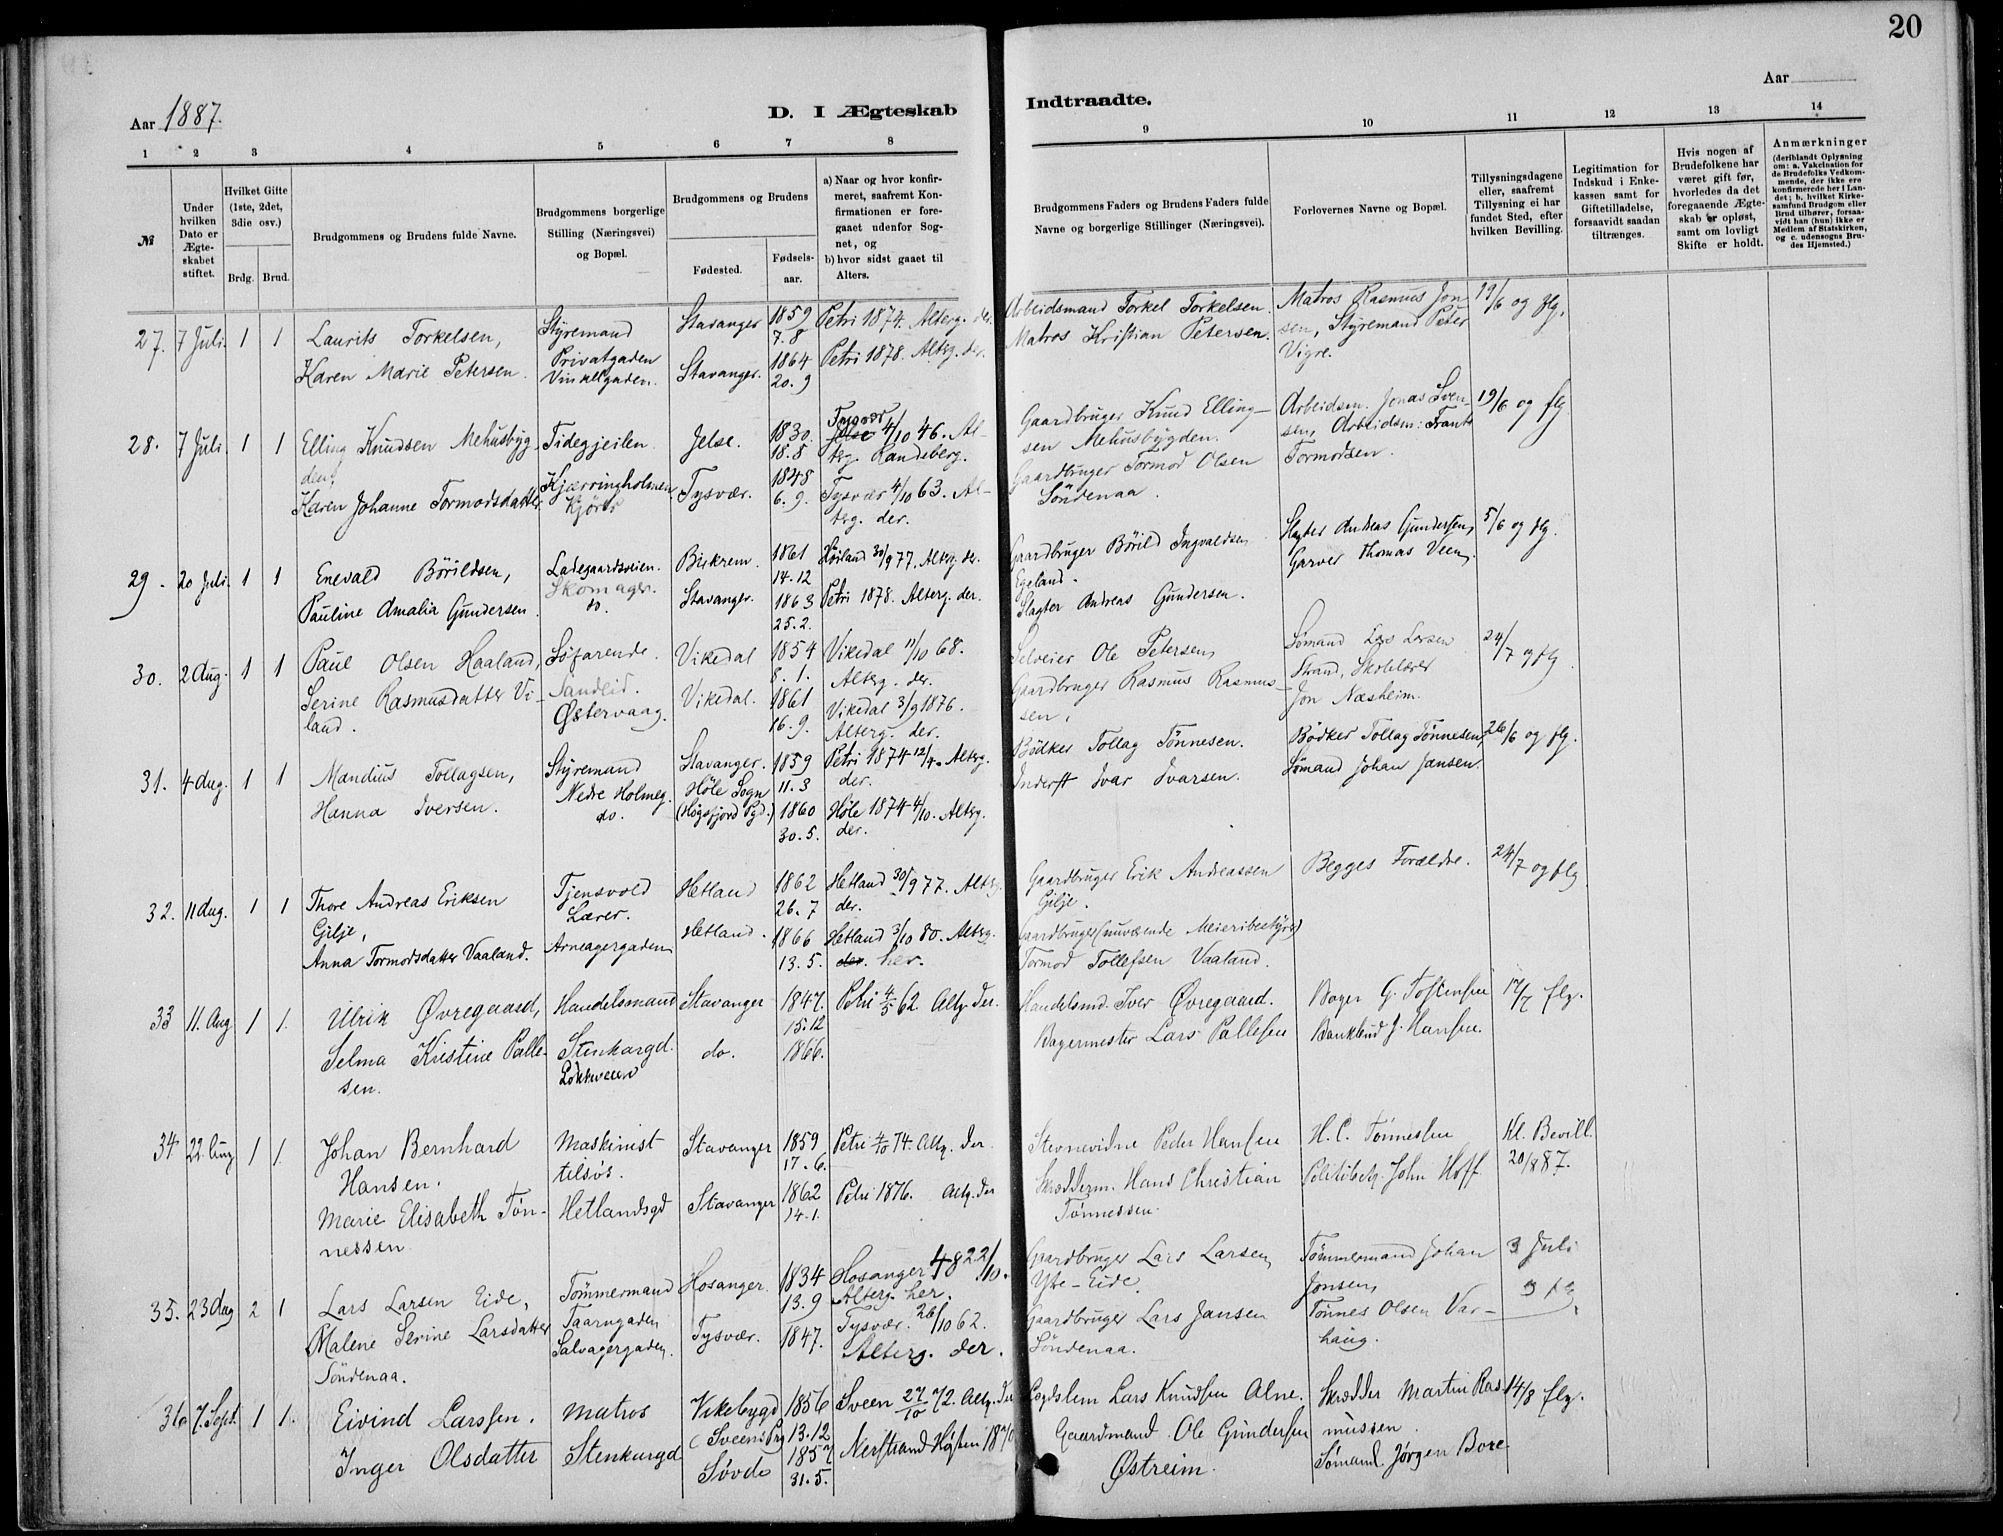 20
Aar 1887.
D. I Ægteskab
Indtraadte.
Aar
1 2 3 4 5 6 7 8
9 10 11 12 13 14
№
Under hvilken Dato er Ægteskabet stiftet.
Hvilket Gifte (1ste, 2det, 3die osv.)
Brdg. Brud.
Brudgommens og Brudens fulde Navne.
Brudgommens borgerlige Stilling (Næringsvei) og Bopæl.
Brudgommens og Brudens
Fødested.
Fødselsaar.
a) Naar og hvor konfirmeret, saafremt Konfirmationen er foregaaet udenfor Sognet, og
b) hvor sidst gaaet til Alters.
Brudgommens Faders og Brudens Faders fulde Navne og borgerlige Stillinger (Næringsvei).
Forlovernes Navne og Bopæl.
Tillysningsdagene eller, saafremt Tillysning ei har fundet Sted, efter hvilken Bevilling.
Legitimation for Indskud i Enkekassen samt for Giftetilladelse, forsaavidt saadan tiltrænges.
Hvis nogen af Brudefolkene har været gift før, hvorledes da det foregaaende Ægteskab er opløst, samt om lovligt Skifte er holdt.
Anmærkninger
(deriblandt Oplysning om: a. Vakcination for de Brudefolks Vedkommende, der ikke ere konfirmerede her i Landet; b. hvilket Kirkesamfund Brudgom eller Brud tilhører, forsaavidt han (hun) ikke er Medlem af Statskirken, og c. udensogns Brudes Hjemsted.)
27. 7 Juli. 1 1 Laurits Torkelsen, Styremand Stavanger 1859 7.8 Petri 1874. Alterg. der. Arbeidsmand Torkel Torkelsen. Matros Rasmus Jon- 19/6 og flg.
Privatgaden sen, Styremand Peter
Karen Marie Petersen. Vinkelgaden. Stavanger. 1864 20.9 Petri 1878. Alterg. der. Matros Kristian Petersen. Vigre.
28. 7 Juli. 1 1 Elling Knudsen Mehusbyg- Tidegjeilen. Jelse. 1830. 18.8 Tysvær 4/10 46. Al- Gaardbruger Knud Elling- Arbeidsm. Jonas Sven- 19/6 og flg
den, terg. Randeberg. sen Mehusbygden. sen, Arbeidsm: Frants
Karen Johanne Tormodsdatter. Kjærringholmen Tysvær. 1848 6.9. Tysvær 4/10 63. Al- Gaardbruger Tormod Olsen Tormodsen.
terg. der. Söndenaa.
29. 20 Juli. 1 1 Enevald Börildsen, Ladegaardsveien. Birkrem. 1861 14.12 Høiland 30/9 77. Alterg. der. Gaardbruger Börild Ingvaldsen Slagter Andreas Gundersen, 5/6 og flg.
Skomager. Egeland. Garver Thomas Veen.
Pauline Amalia Gundersen. do. Stavanger. 1863 25.2. Petri 1878. Alterg. der. Slagter Andreas Gundersen.
30. 2 Aug. 1 1 Paul Olsen Haaland, Søfarende. Vikedal 1854 8.1. Vikedal 11/10 68. Selveier Ole Petersen, Sømand Lars Larsen 24/7 og flg.
Sandeid. Alterg. der. Strand, Skolelærer
Serine Rasmusdatter Vi- Østervaag. Vikedal. 1861 16.9. Vikedal 3/9 1876. Gaardbruger Rasmus Rasmus- Jon Næsheim.
land. Alterg. der. sen,
31. 4 Aug. 1 1 Mandius Tollagsen, Styremand Stavanger. 1859 11.3 Petri 1874 12/4. Alterg. der. Bödker Tollag Tönnesen. Bödker Tollag Tönnesen, 26/6 og flg.
Nedre Holmeg. Höle Sogn
Hanna Iversen. do. (Högsfjord Pgd.) 1860 30.5. Höle 1874 4/10. Alterg. der. Inderst Ivar Ivarsen. Sømand Johan Jansen.
32. 11 Aug. 1 1 Thore Andreas Eriksen Tjensvold Hetland 1862 26.7 Hetland 30/9 77. Alterg. der. Gaardbruger Erik Andreassen Begges Forældre. 24/7 og flg
Gilje, Lærer. Gilje.
Anna Tormodsdatter Vaaland. Arneagergaden Hetland. 1866 13.5. Hetland 3/10 80. Alterg. der. her. Gaardbruger (nuværende Meieribestyrer)
Tormod Tollefsen Vaaland.
33 11. Aug 1 1. Ulrik Øvregaard, Handelsmand Stavanger 1847. 15.12 Petri 4/5 62. Altg. der. Handelsmd. Iver Øvregaard. Bager G. Tostensen 17/7 flg.
Selma Kristine Palle- Stenkargd. do. 1866. Bagermester Lars Pallesen J. Hansen.
sen. Løkkeveien
34 22. Aug 1 1. Johan Bernhard Maskinist Stavanger 1859 17.6. Petri 4/10 74. Altg. der Stevnevidne Peder Hansen H. C. Tönnessen Kl. Bevill.
Hansen. tilsös. 20/8 87.
Marie Elisabeth Tøn- Hetlandsgd Stavanger 1862 14.1. Petri 1876. Altg. der Skrædderm. Hans Christian Politibetj. John Hoff
nessen. Tønnessen.
35. 23 Aug 2 1 Lars Larsen Eide, Tömmermand Hosanger. 1834 13.9 Hosanger 48 22/10. Gaardbruger Lars Larsen Tömmermand Johan 3 Juli
Taarngaden Alterg. her. Ytre-Eide. Jonsen, og flg.
Malene Serine Larsdatter Salvagergaden. Tysvær. 1847. Tysvær. 26/10 62. Gaardbruger Lars Jansen Tönnes Olsen Var-
Söndenaa. Alterg. der. Söndenaa. haug.
36 7. Sept. 1 1. Eivind Larssen. Matros Vikebygd 1856 13.12 Sveen 27/10 72. Altg. der Lægdslem Lars Knudsen Alne. Skrædder Martin Ras- 14/8 flg.
(Sveens Prg mussen.
Inger Olsdatter Stenkargd Søvde 1857 31.5. Nerstrand Høsten 1870 Gaardmand Ole Gundersen Sømand. Jørgen Bore
Østreim.